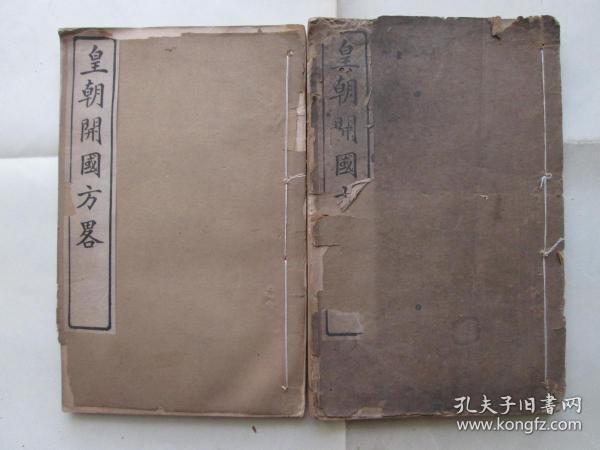 皇朝開國方畧
皇朝開國方
孔夫子旧書网
www.kongfz.com